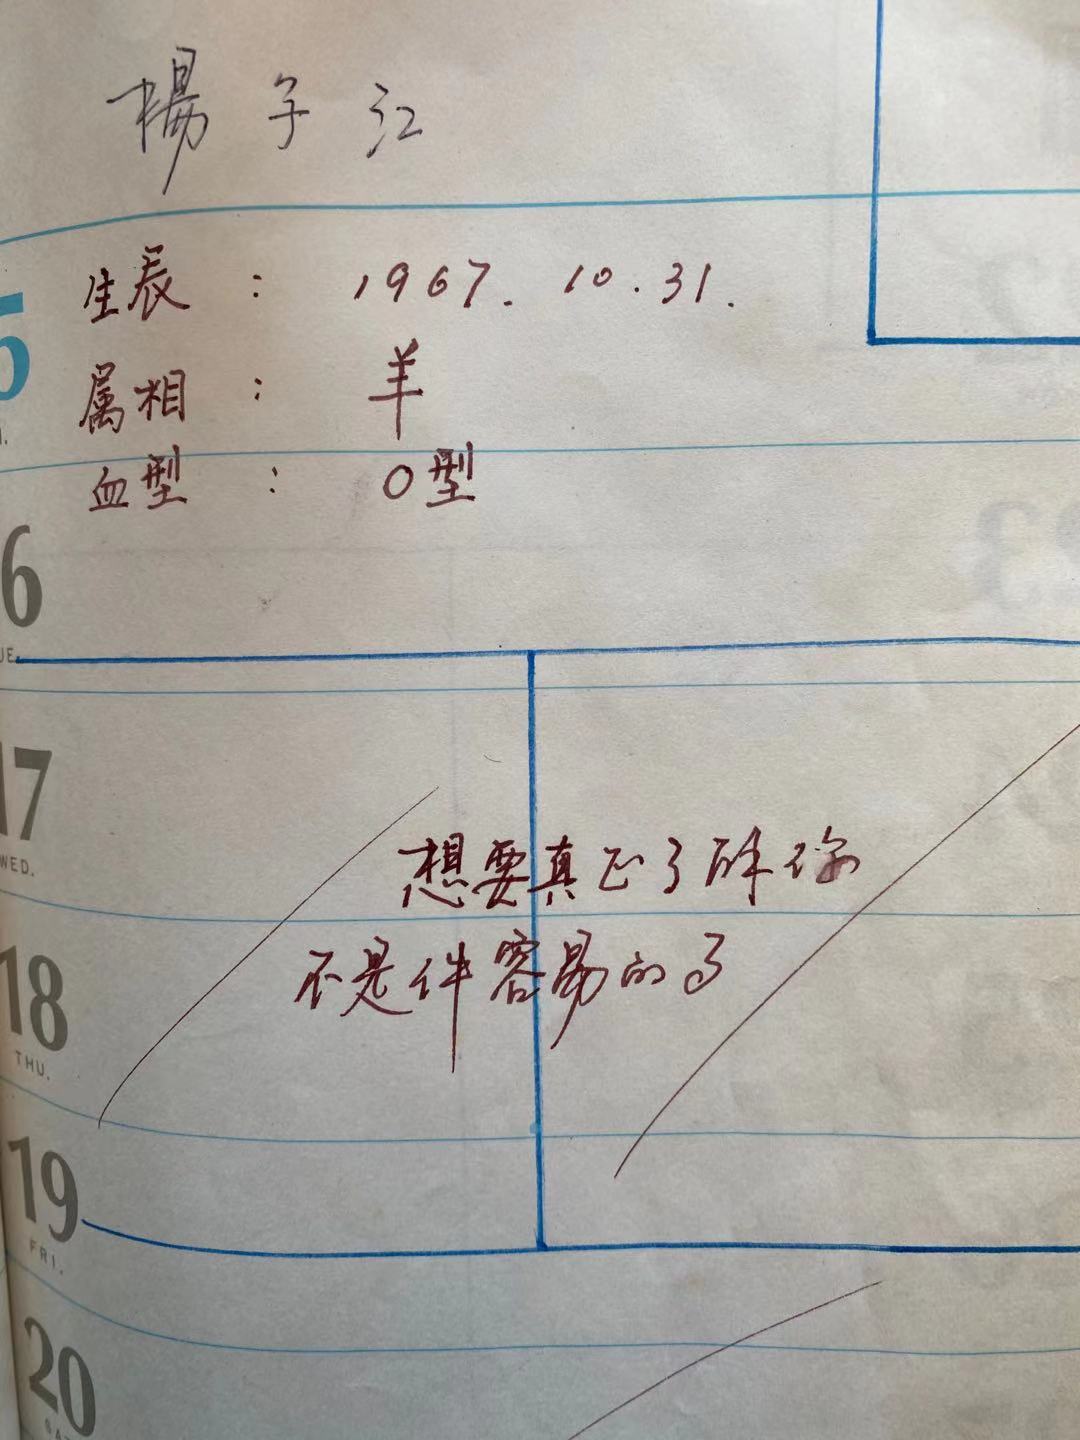 楊子江
生辰：1967.10.31.
属相：羊
血型：O型
6
17
WED.
想要真正了解你
18
不是件容易的了
THU.
19
FRI.
20